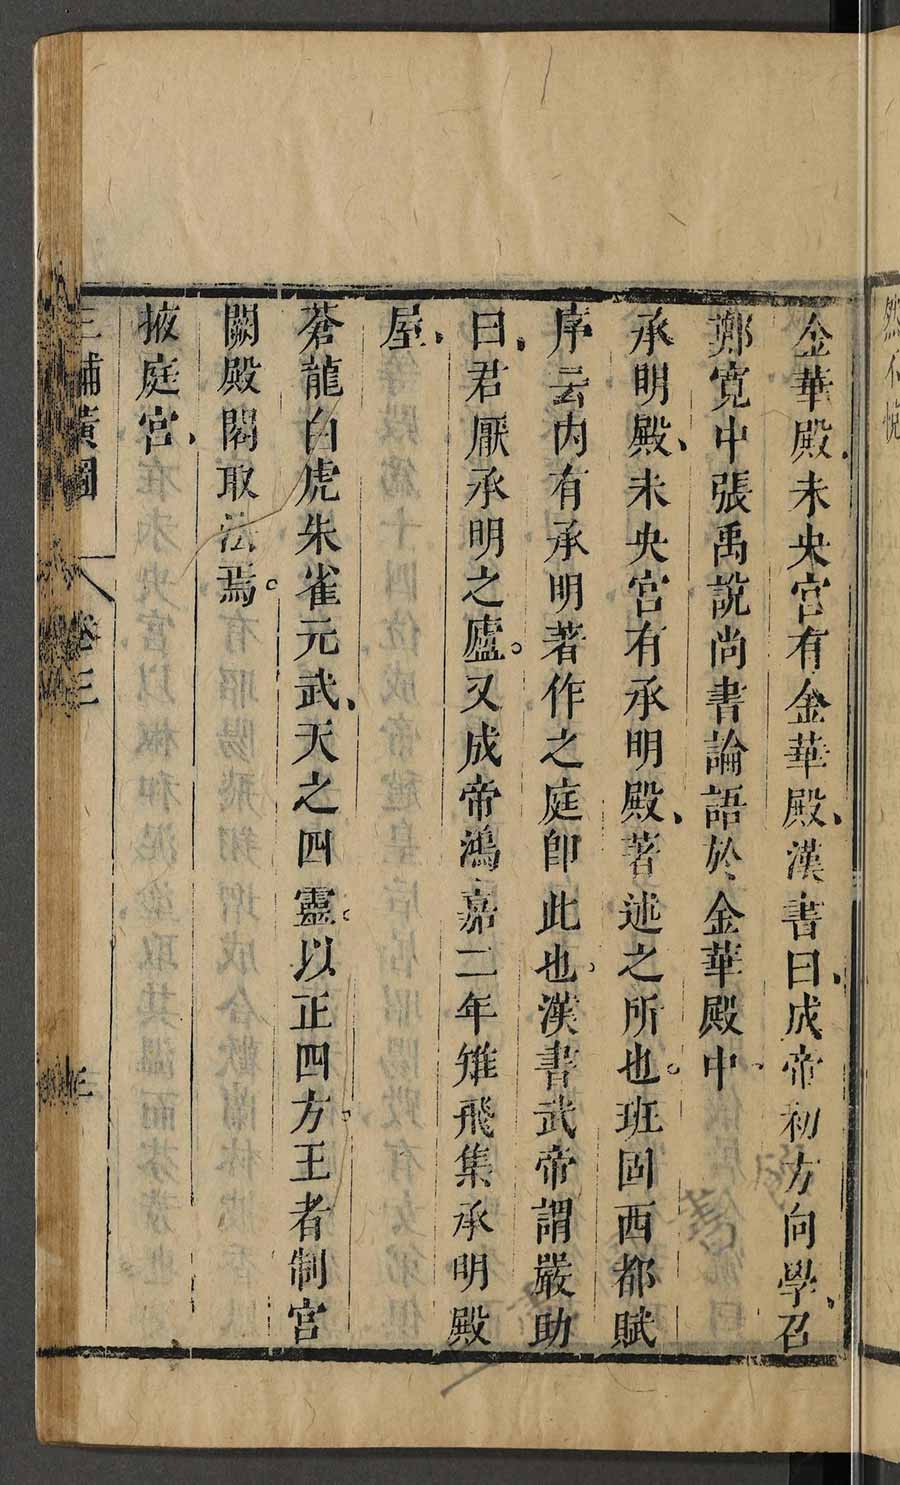 然不悅
金華殿未央宮有金華殿漢書曰成帝初方向學召
鄭寬中張禹說尚書論語於金華殿中
承明殿未央宮有承明殿著述之所也班固西都賦
序云内有承明著作之庭卽此也漢書武帝謂嚴助
曰君厭承明之廬又成帝鴻嘉二年雉飛集承明殿
屋
蒼龍白虎朱雀元武天之四靈以正四方王者制宮
闕殿閣取法焉
掖庭宮
三輔黃圖 卷三 三